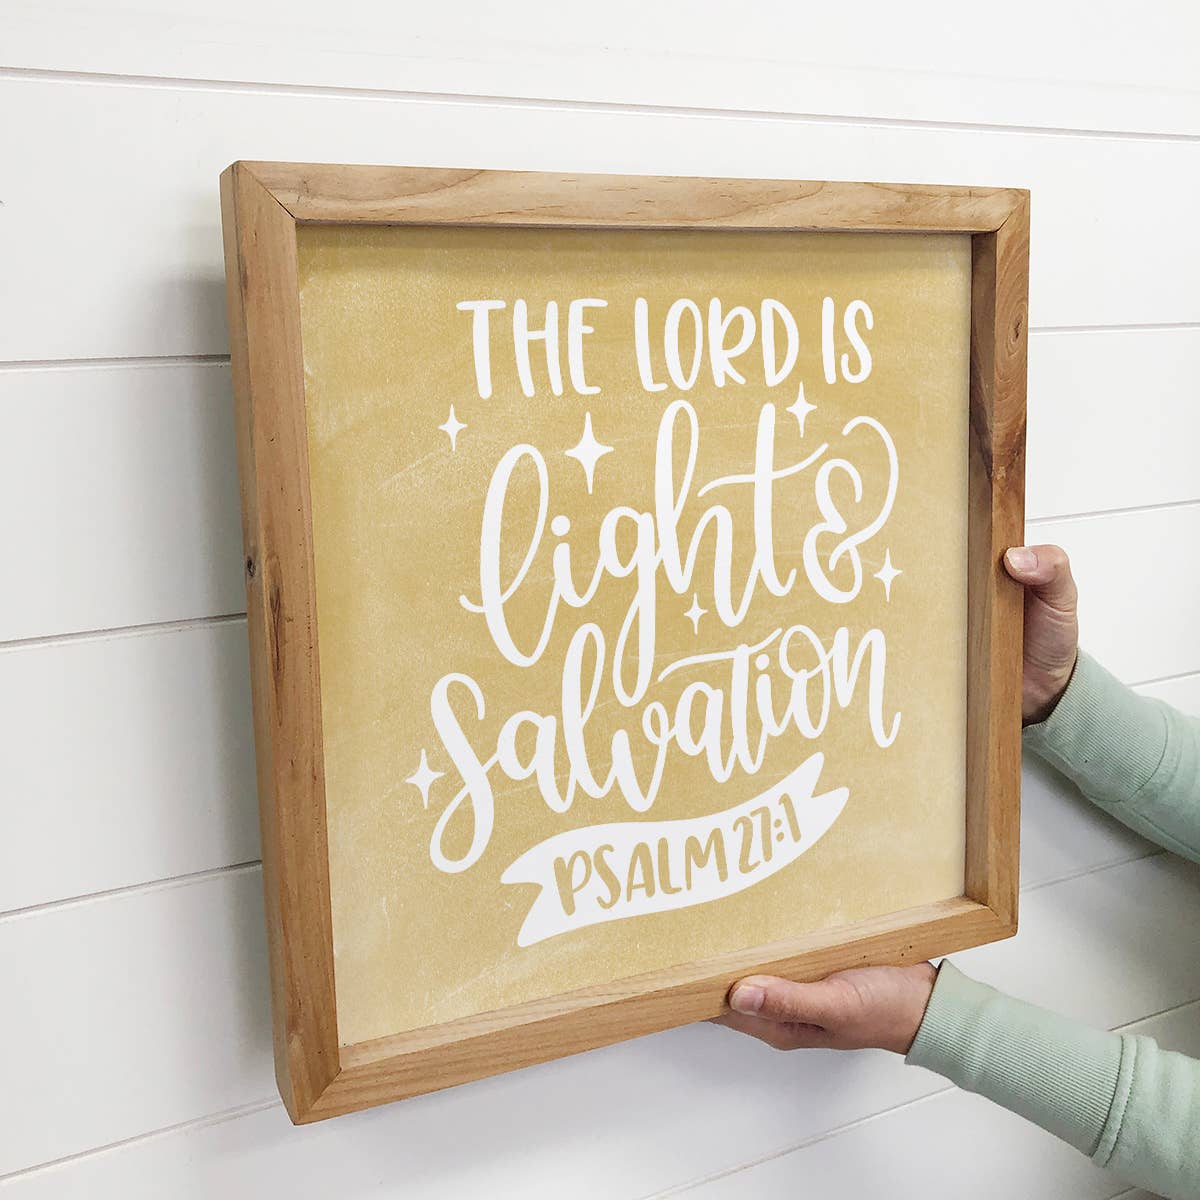 THE LORD IS
light &
Salvation
PSALM 27:1